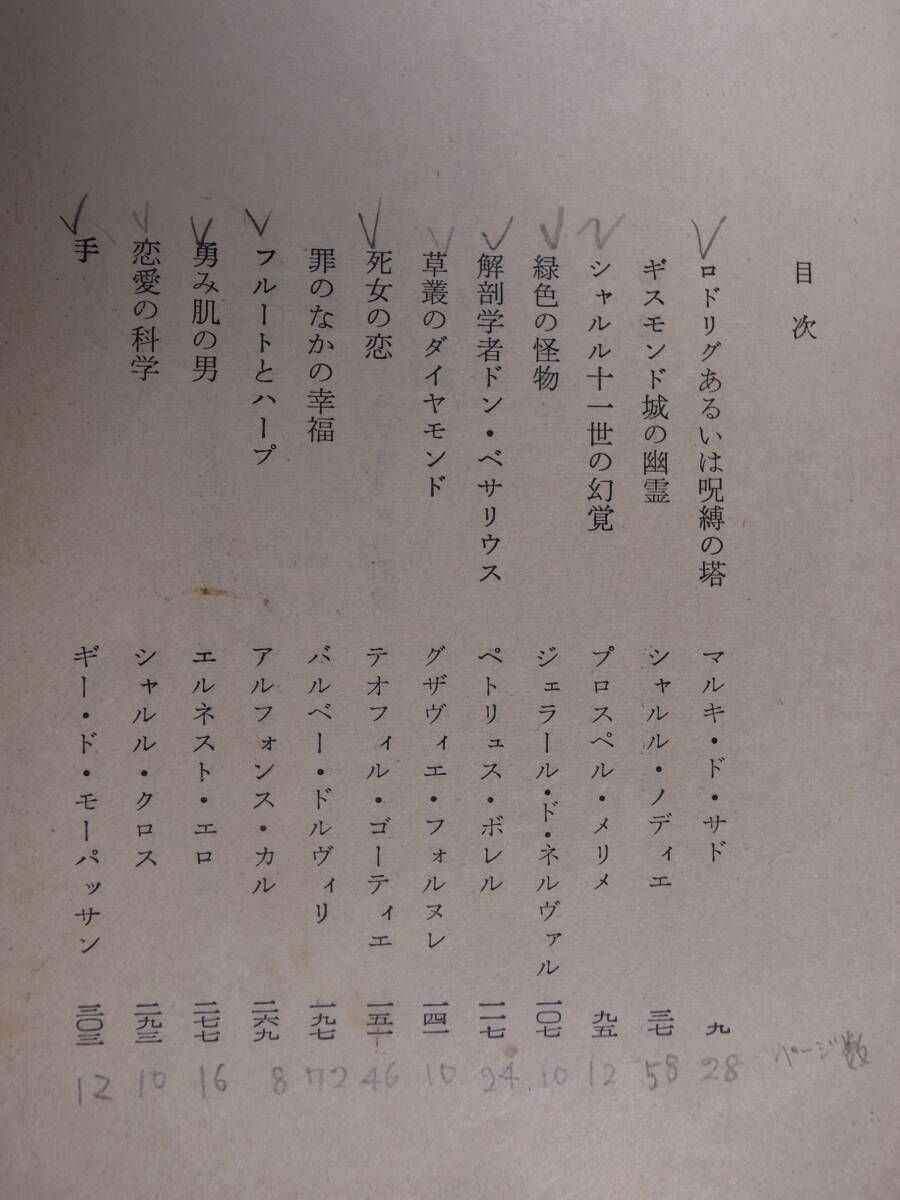 目次
ロドリグあるいは呪縛の塔 マルキ・ド・サド 九 28
ギスモンド城の幽霊 シャルル・ノディエ 三七 58
シャルル十一世の幻覚 プロスペル・メリメ 九五 12
緑色の怪物 ジェラール・ド・ネルヴァル 一〇七 10
解剖学者ドン・ベサリウス ペトリュス・ボレル 一一七 24
草叢のダイヤモンド グザヴィエ・フォルヌレ 一四一 10
死女の恋 テオフィル・ゴーティエ 一五一 46
罪のなかの幸福 バルベー・ドルヴィリ 一九七 72
フルートとハープ アルフォンス・カル 二六九 8
勇み肌の男 エルネスト・エロ 二七七 16
恋愛の科学 シャルル・クロス 二九三 10
手 ギー・ド・モーパッサン 三〇三 12
ページ数